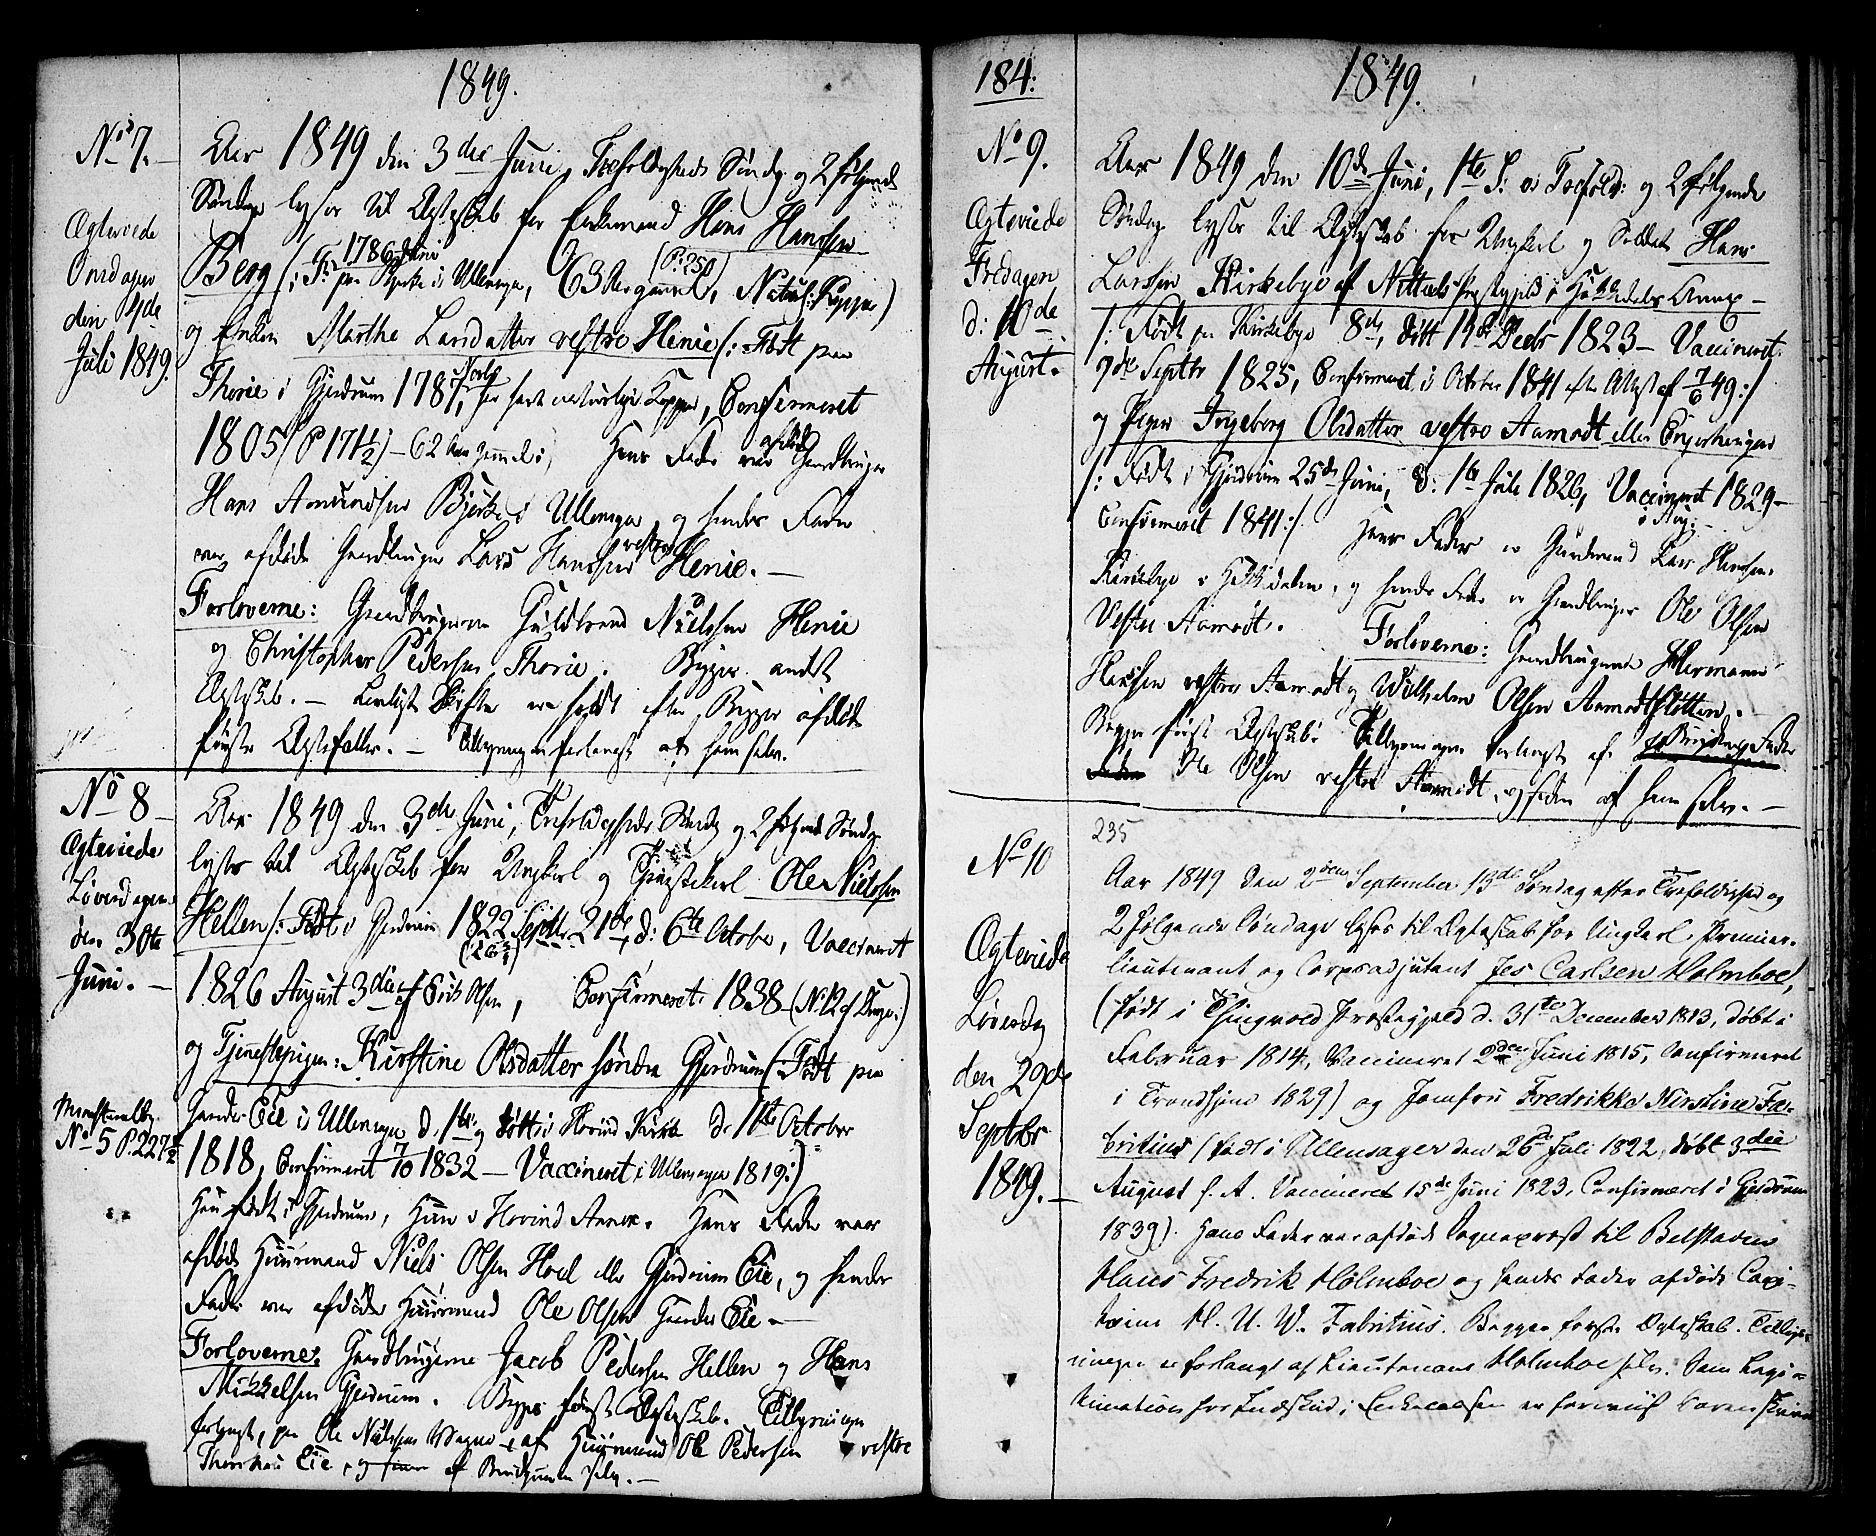 1849.
No 7.
Ægteviede
Onsdagen
den 4de
Juli 1849.
Aar 1849 den 3die Juni, Trefoldigheds Søndg og 2 følgende
Søndage lyser til Ægteskab for Enkemand Hans Hansen
Berg /: F: 1786 Juni paa Bjerke i Ullensager, 63 Aar gammel, (P. 250) Naturl: Kopper)
og Enken Marthe Larsdatter vestre Henie /: Født paa
Thorie i Gjerdrum 1787, har havt naturlige Kopper, Confirmeret
1805 (P 171½) – 62 Aar gammel. Hans Fader var afdøde Gaardbruger
Hans Amundsen Bjerke i Ullensager, og hendes Fader
var afdøde Gaardbruger Lars Hansen vestre Henie. –
Forloverne: Gaardbrugerne Guldbrand Nielsen Henie
og Christopher Pedersen Thorie. Begges andet
Ægteskab. – Lovligt Skifte er holdt efter Begges afdøde
første Ægtefæller. – Tillysningen forlangt af ham selv.
No 8 –
Ægteviede
Løverdagen
den 30te
Juni. –
No 5 P. 227½
Aar 1849 den 3die Juni, Trefoldigheds Søndg og 2 følgende Søndage
lyses til Ægteskab for Ungkarl og Tjenestekarl Ole Nielsen
Hellen /: Født i Gjerdrum 1822 Septbr 21de, d: 6te Octobr, Vaccineret
1826 August 3die af Erik Olsen, Confirmeret 1838 (No 12 af Drenge)
og Tjenestepigen: Kirstine Olsdatter søndre Gjerdrum (Født paa
Hender Eie i Ullensager d. 1te og døbt i Hovind Kirke d. 11te October
1818, Confirmeret 7/10 1832 – Vaccineret i Ullensager 1819:)
Han født i Gjerdrum, Hun i Hovind Annex. Hans Fader var
afdøde Huusmand Niels Olsen Hoel eller Gjerdrum Eie, og hendes
Fader var afdøde Huusmand Ole Olsen Hender Eie. –
Forloverne: Gaardbrugerne Jacob Pedersen Hellen og Hans
Mikkelsen Gjerdrum. Begges første Ægteskab. Tillysningen
forlangt, paa Ole Nielsens Vegne, af Huusmand Ole Pedersen vestre
Eie, og af Brudgommen selv. –
184:
1849.
No 9.
Ægteviede
Fredagen
d: 10de
August.
Aar 1849 den 10de Juni, 1te S: e: Trefold: og 2 følgende
Søndage lyses til Ægteskab for Ungkarl og Soldat Hans
Larsen Kirkebye af Nittedals Præstegjeld i Hakedals Annex –
/: Født paa Kirkebye 8de, døbt 19de Decbr 1823 – Vaccineret
7de Septbr 1825, Confirmeret i October 1841 efter Attest af 7/6 49:/
og Pigen Ingeborg Olsdatter vestre Aamodt eller Engerhaugen
/: Født i Gjerdrum 25de Juni, d: 16 Juli 1826, Vaccineret 1829 –
i Aug: –
Confirmeret 1841:/. Hans Fader er Gaardmand Lars Hansen
Kirkebye i Hakkedalen, og hendes Fader er Gaardbruger Ole Olsen
Vestre Aamodt. Forloverne: Gaardbrugerne Hermann
Hansen vestre Aamodt og Wilhelm Olsen Aamodtslotten. –
Begges første Ægteskab. Tillysningen forlangt af Brudens Fader
Ole Olsen vestre Aamodt, og siden af ham selv. –
235
No 10
Ægteviede
Løverdag
den 29de
Septbr
1849. –
Aar 1849 den 2den September 13de Søndag efter Trefoldighed og
2 følgende Søndage lyses til Ægteskab for Ungkarl, Premier-
lieutenant og Corpsadjutant Jes Carlsen Holmboe,
(født i Thingvold Præstegjeld d. 31te December 1813, døbt i
Februar 1814, Vaccineret 2den Juni 1815, Confirmeret
i Trondhjem 1829) og Jomfru Fredrikke Kirstine Fa-
britius (født i Ullensager den 26de Juli 1822, døbt 3die
August s. A. Vaccineret 15de Juni 1823, Confirmeret i Gjerdrum
1839). Hans Fader var afdøde Sognepræst til Bolstaden
Hans Fredrik Holmboe og hendes Fader afdøde Capi-
taine H. U. W. Fabritius. Begges første Ægteskab. Tillys-
ningen er forlangt af Lieutenant Holmboe selv. Som Legi-
timation for Indskud i Enkecassen er foreviist